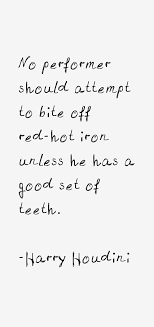 No performer
should attempt
to bite off
red-hot iron
unless he has a
good set of
teeth.
-Harry Houdini